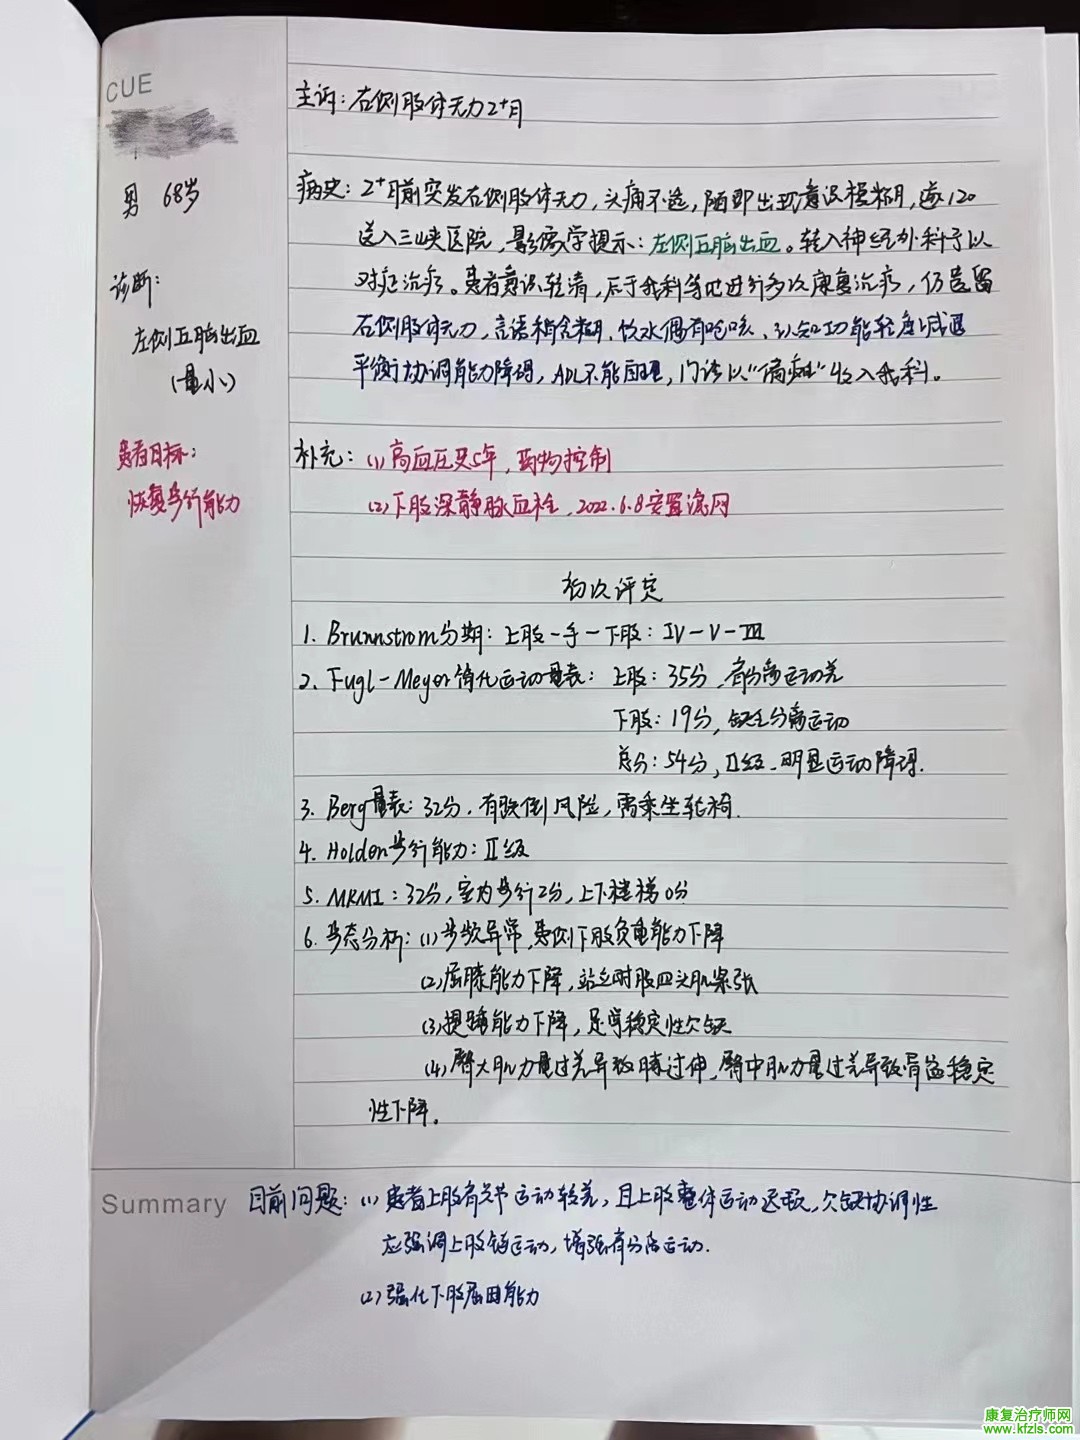 CUE
主诉：右侧肢体无力2⁺月
男 68岁
病史：2⁺月前突发右侧肢体无力，头痛不适，随即出现意识模糊，遂120
送入三峡医院，影像学提示：左侧丘脑出血。转入神经外科予以
诊断：
对症治疗。患者意识转清，后于我科等地进行多次康复治疗，仍遗留
左侧丘脑出血
右侧肢体无力，言语稍含糊、饮水偶有呛咳、认知功能轻度减退
(量小)
平衡协调能力障碍，ADL不能自理，门诊以“偏瘫”收入我科。
患者目标：
补充：(1)高血压史5年，药物控制
恢复步行能力
(2)下肢深静脉血栓，2022.6.8安置滤网
初次评定
1. Brunnstrom分期：上肢-手-下肢：IV-V-III
2. Fugl-Meyer简化运动量表：上肢：35分，分离运动差
下肢：19分，缺乏分离运动
总分：54分，II级、明显运动障碍.
3. Berg量表：32分，有跌倒风险，需乘坐轮椅.
4. Holden步行能力：II级
5. MRMI：32分，室内步行2分，上下楼梯0分
6. 步态分析：(1)步频异常，患侧下肢负重能力下降
(2)屈膝能力下降，站立时股四头肌紧张
(3)提踵能力下降，足弓稳定性欠缺
(4)臀大肌力量过差导致膝过伸、臀中肌力量过差导致骨盆稳定
性下降。
Summary 目前问题：(1)患者上肢肩关节运动较差，且上肢整体运动迟缓，欠缺协调性
应强调上肢运动，增强肩分离运动.
(2)强化下肢屈曲能力
康复治疗师网
www.kfzls.com